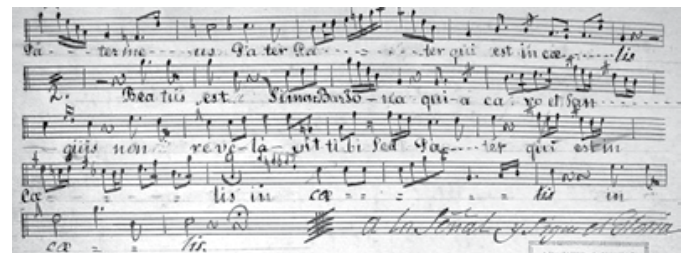 Pa - - ter me - - us Pa ter Pa - - - - - - - ter qui est in cœ - - - - lis
2. Beatus est Simon BarJo - na qui - a ca - ro et San - - - -
guis non reve - la - vit ti bi Sed Pa - - - - ter qui est in
cœ - - - - lis in cœ - - - - lis in
cœ - - lis. a la Señal y Sigue el Gloria